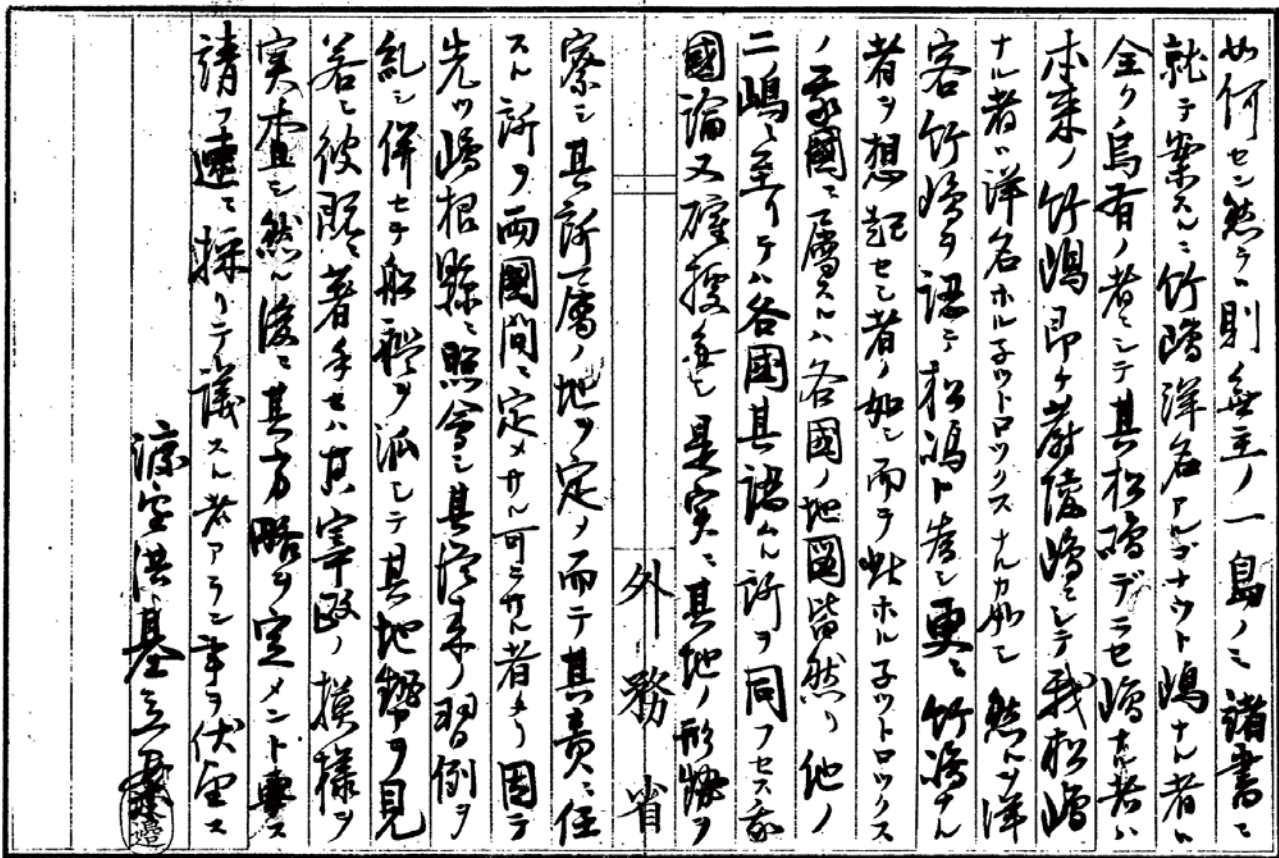 如何セン然ラハ則無主ノ一島ノミ諸書ニ
就テ案スルニ竹嶋洋名アルゴナウト嶋ナル者ハ
全ク烏有ノ者ニシテ其松嶋デラセ嶋ナル者ハ
本来ノ竹嶋即チ蔚陵嶋ニシテ我松嶋
ナル者ハ洋名ホルネットロックスナルカ如シ然ルヲ洋
客竹嶋ヲ認テ松嶋ト為シ更ニ竹嶋ナル
者ヲ想起セシ者ノ如シ而テ此ホルネットロックス
ノ我國ニ属スルハ各國ノ地図皆然リ他ノ
二嶋ニ至リテハ各國其認ムル所ヲ同フセス我
國論又確據無シ是実ニ其地ノ形勢ヲ
外務省
察シ其所属ノ地ヲ定メ而テ其責ニ任
スル所ヲ両國間ニ定メサル可ラサル者タリ因テ
先ツ嶋根縣ニ照會シ其従来ノ習例ヲ
糺シ併セテ船艦ヲ派シテ其地勢ヲ見
若シ彼既ニ着手セハ其宰政ノ模様ヲ
実査シ然ル後ニ其方略ヲ定メント要ス
請フ速ニ採リテ議スル者アラン事ヲ伏望ス
渡邉洪基立案